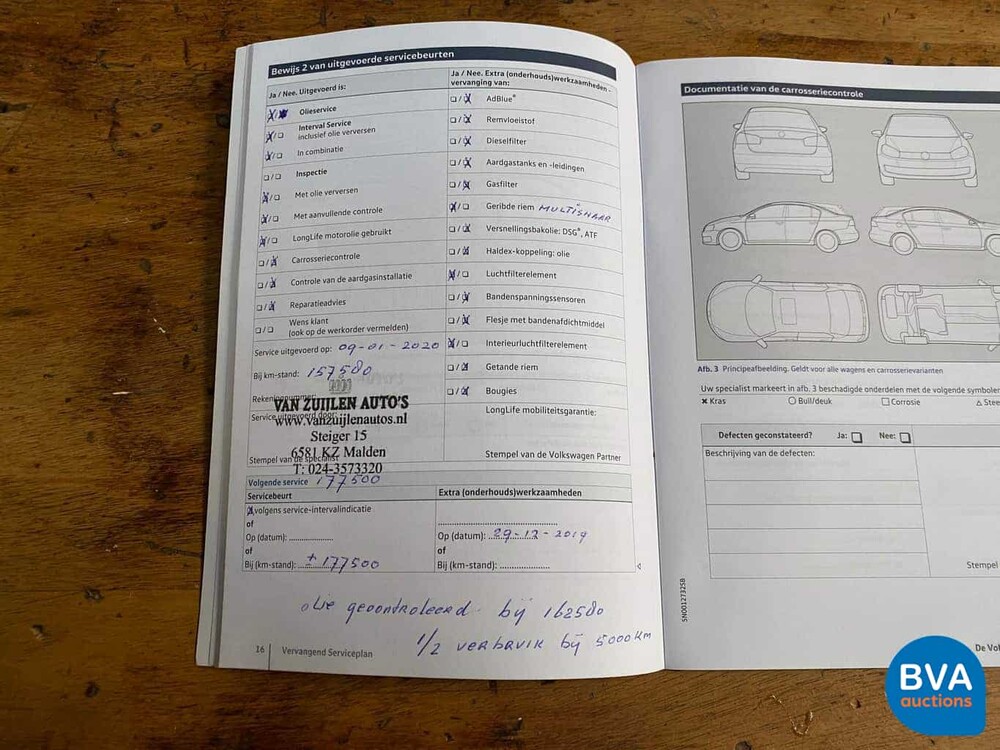 Bewijs 2 van uitgevoerde servicebeurten
Ja / Nee. Uitgevoerd is:
Olieservice
Interval Service
inclusief olie verversen
In combinatie
Inspectie
Met olie verversen
Met aanvullende controle
LongLife motorolie gebruikt
Carrosseriecontrole
Controle van de aardgasinstallatie
Reparatieadvies
Wens klant
(ook op de werkorder vermelden)
Service uitgevoerd op: 09-01-2020
Bij km-stand: 157580
Rekeningnummer:
VAN ZUIJLEN AUTO'S
Service uitgevoerd door:
www.vanzuijlenautos.nl
Steiger 15
6581 KZ Malden
Stempel van de specialist
T: 024-3573320
Ja / Nee. Extra (onderhouds)werkzaamheden -
vervanging van:
AdBlue®
Remvloeistof
Dieselfilter
Aardgastanks en -leidingen
Gasfilter
Geribde riem MULTISNAAR
Versnellingsbakolie: DSG®, ATF
Haldex-koppeling: olie
Luchtfilterelement
Bandenspanningssensoren
Flesje met bandenafdichtmiddel
Interieurluchtfilterelement
Getande riem
Bougies
LongLife mobiliteitsgarantie:
Stempel van de Volkswagen Partner
Volgende service 177500
Servicebeurt
volgens service-intervalindicatie
of
Op (datum):
of
Bij (km-stand): ± 177500
Extra (onderhouds)werkzaamheden
Op (datum): 29-12-2019
of
Bij (km-stand):
olie gecontroleerd bij 162580
1/2 verbruik bij 5000 km
16 Vervangend Serviceplan
Documentatie van de carrosseriecontrole
Afb. 3 Principeafbeelding. Geldt voor alle wagens en carrosserievarianten
Uw specialist markeert in afb. 3 beschadigde onderdelen met de volgende symbolen
Kras Bult/deuk Corrosie Stee
Defecten geconstateerd? Ja: Nee:
Beschrijving van de defecten:
Stempel
5N0012732SB
De Vol
BVA
auctions